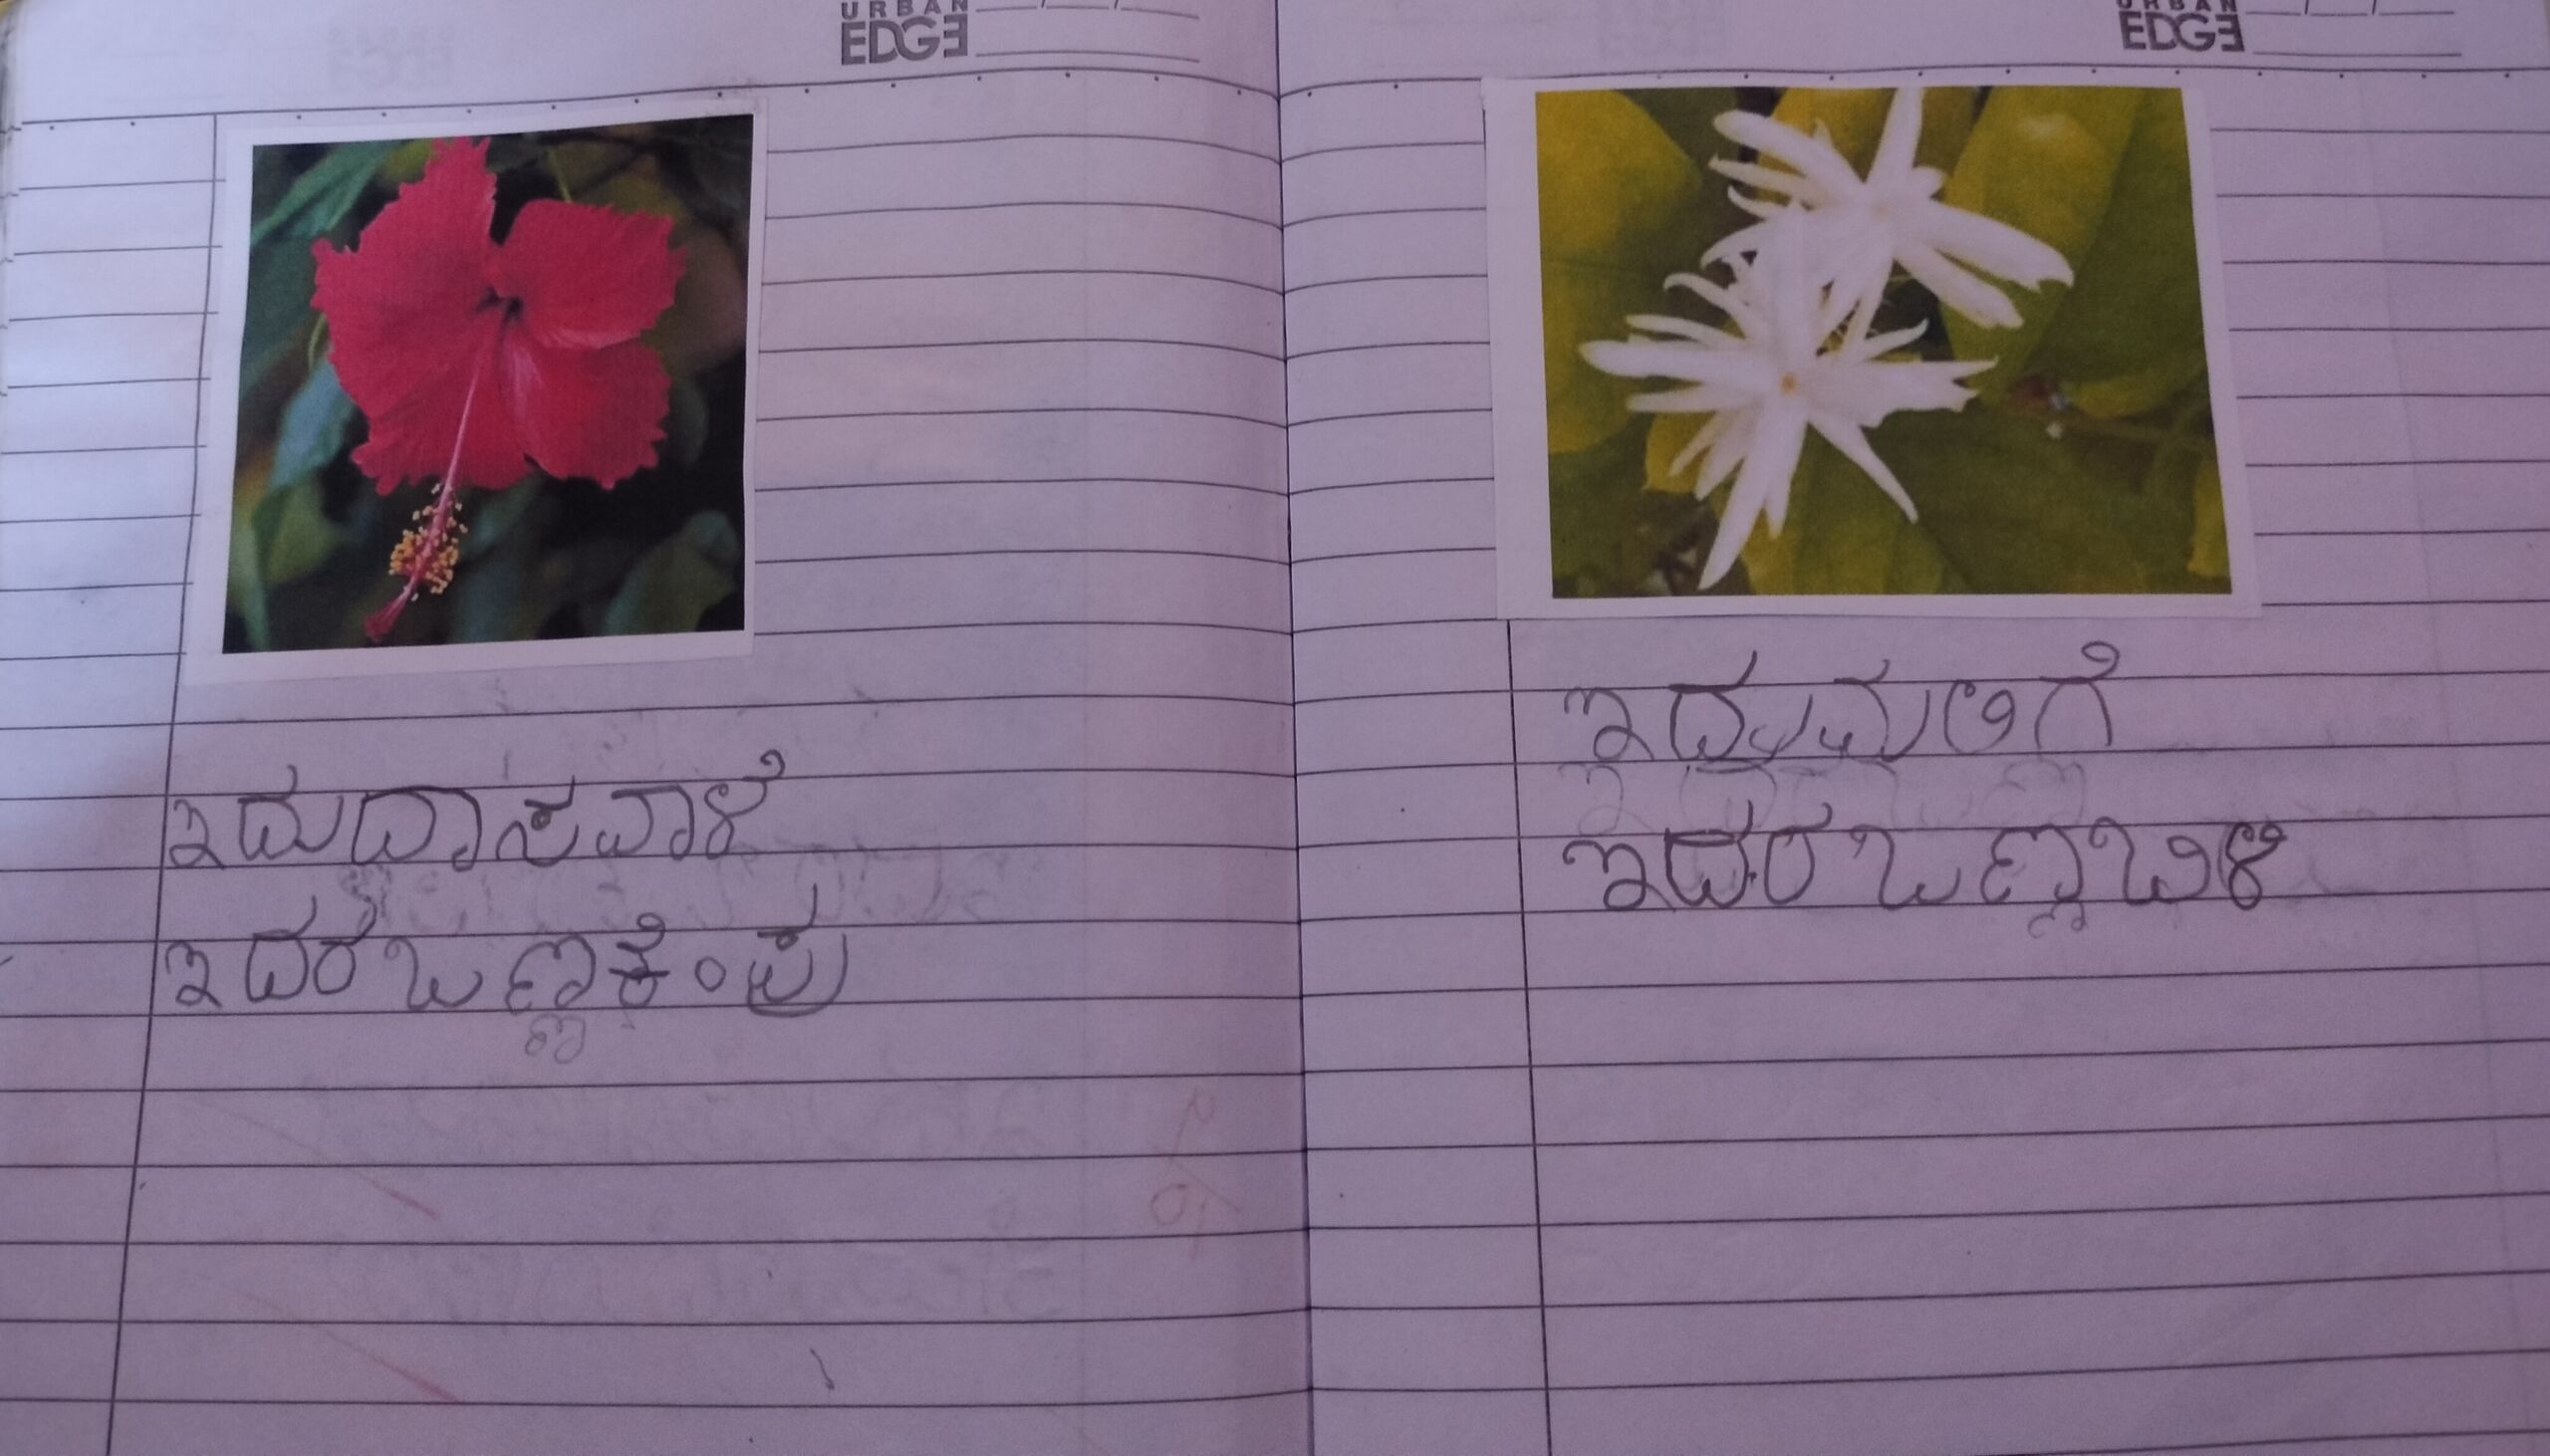 URBAN
EDGE
ಇದು ದಾಸವಾಳೆ
ಇದರ ಬಣ್ಣ ಕೆಂಪು
URBAN
EDGE
ಇದು ಮಲಿಗೆ
ಇದರ ಬಣ್ಣ ಬಿಳಿ